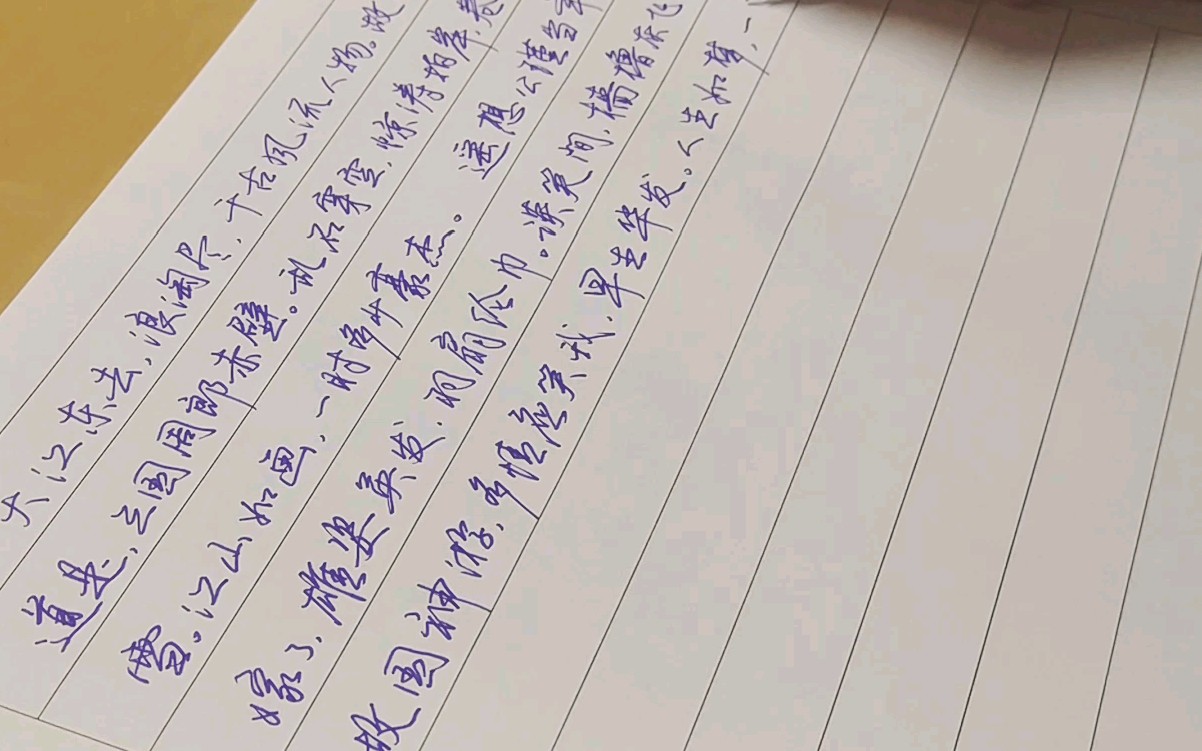 大江东去，浪淘尽，千古风流人物。故
道是，三国周郎赤壁。乱石穿空，惊涛拍岸，卷
雪。江山如画，一时多少豪杰。遥想公瑾当
嫁了，雄姿英发，羽扇纶巾。谈笑间，樯橹灰飞
故国神游，多情应笑我，早生华发。人生如梦，一